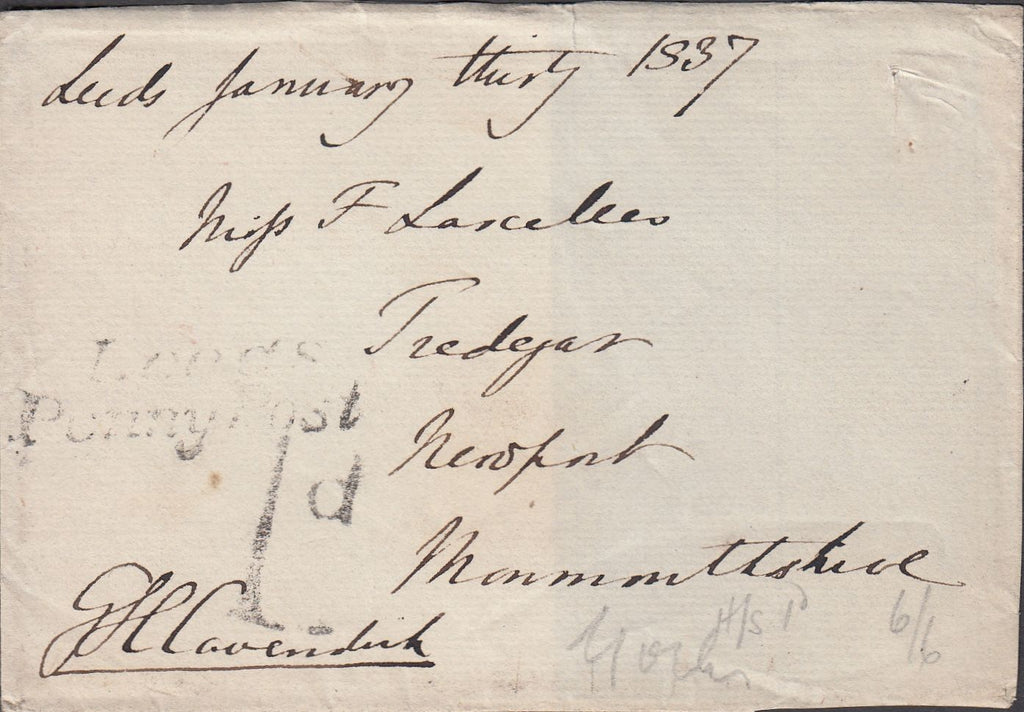 Leeds January thirty 1837
Miss F Lascelles
Tredegar
Newport
Monmouthshire
Leeds
Penny Post
1d
GHCavendish
H/S 1d
6/6